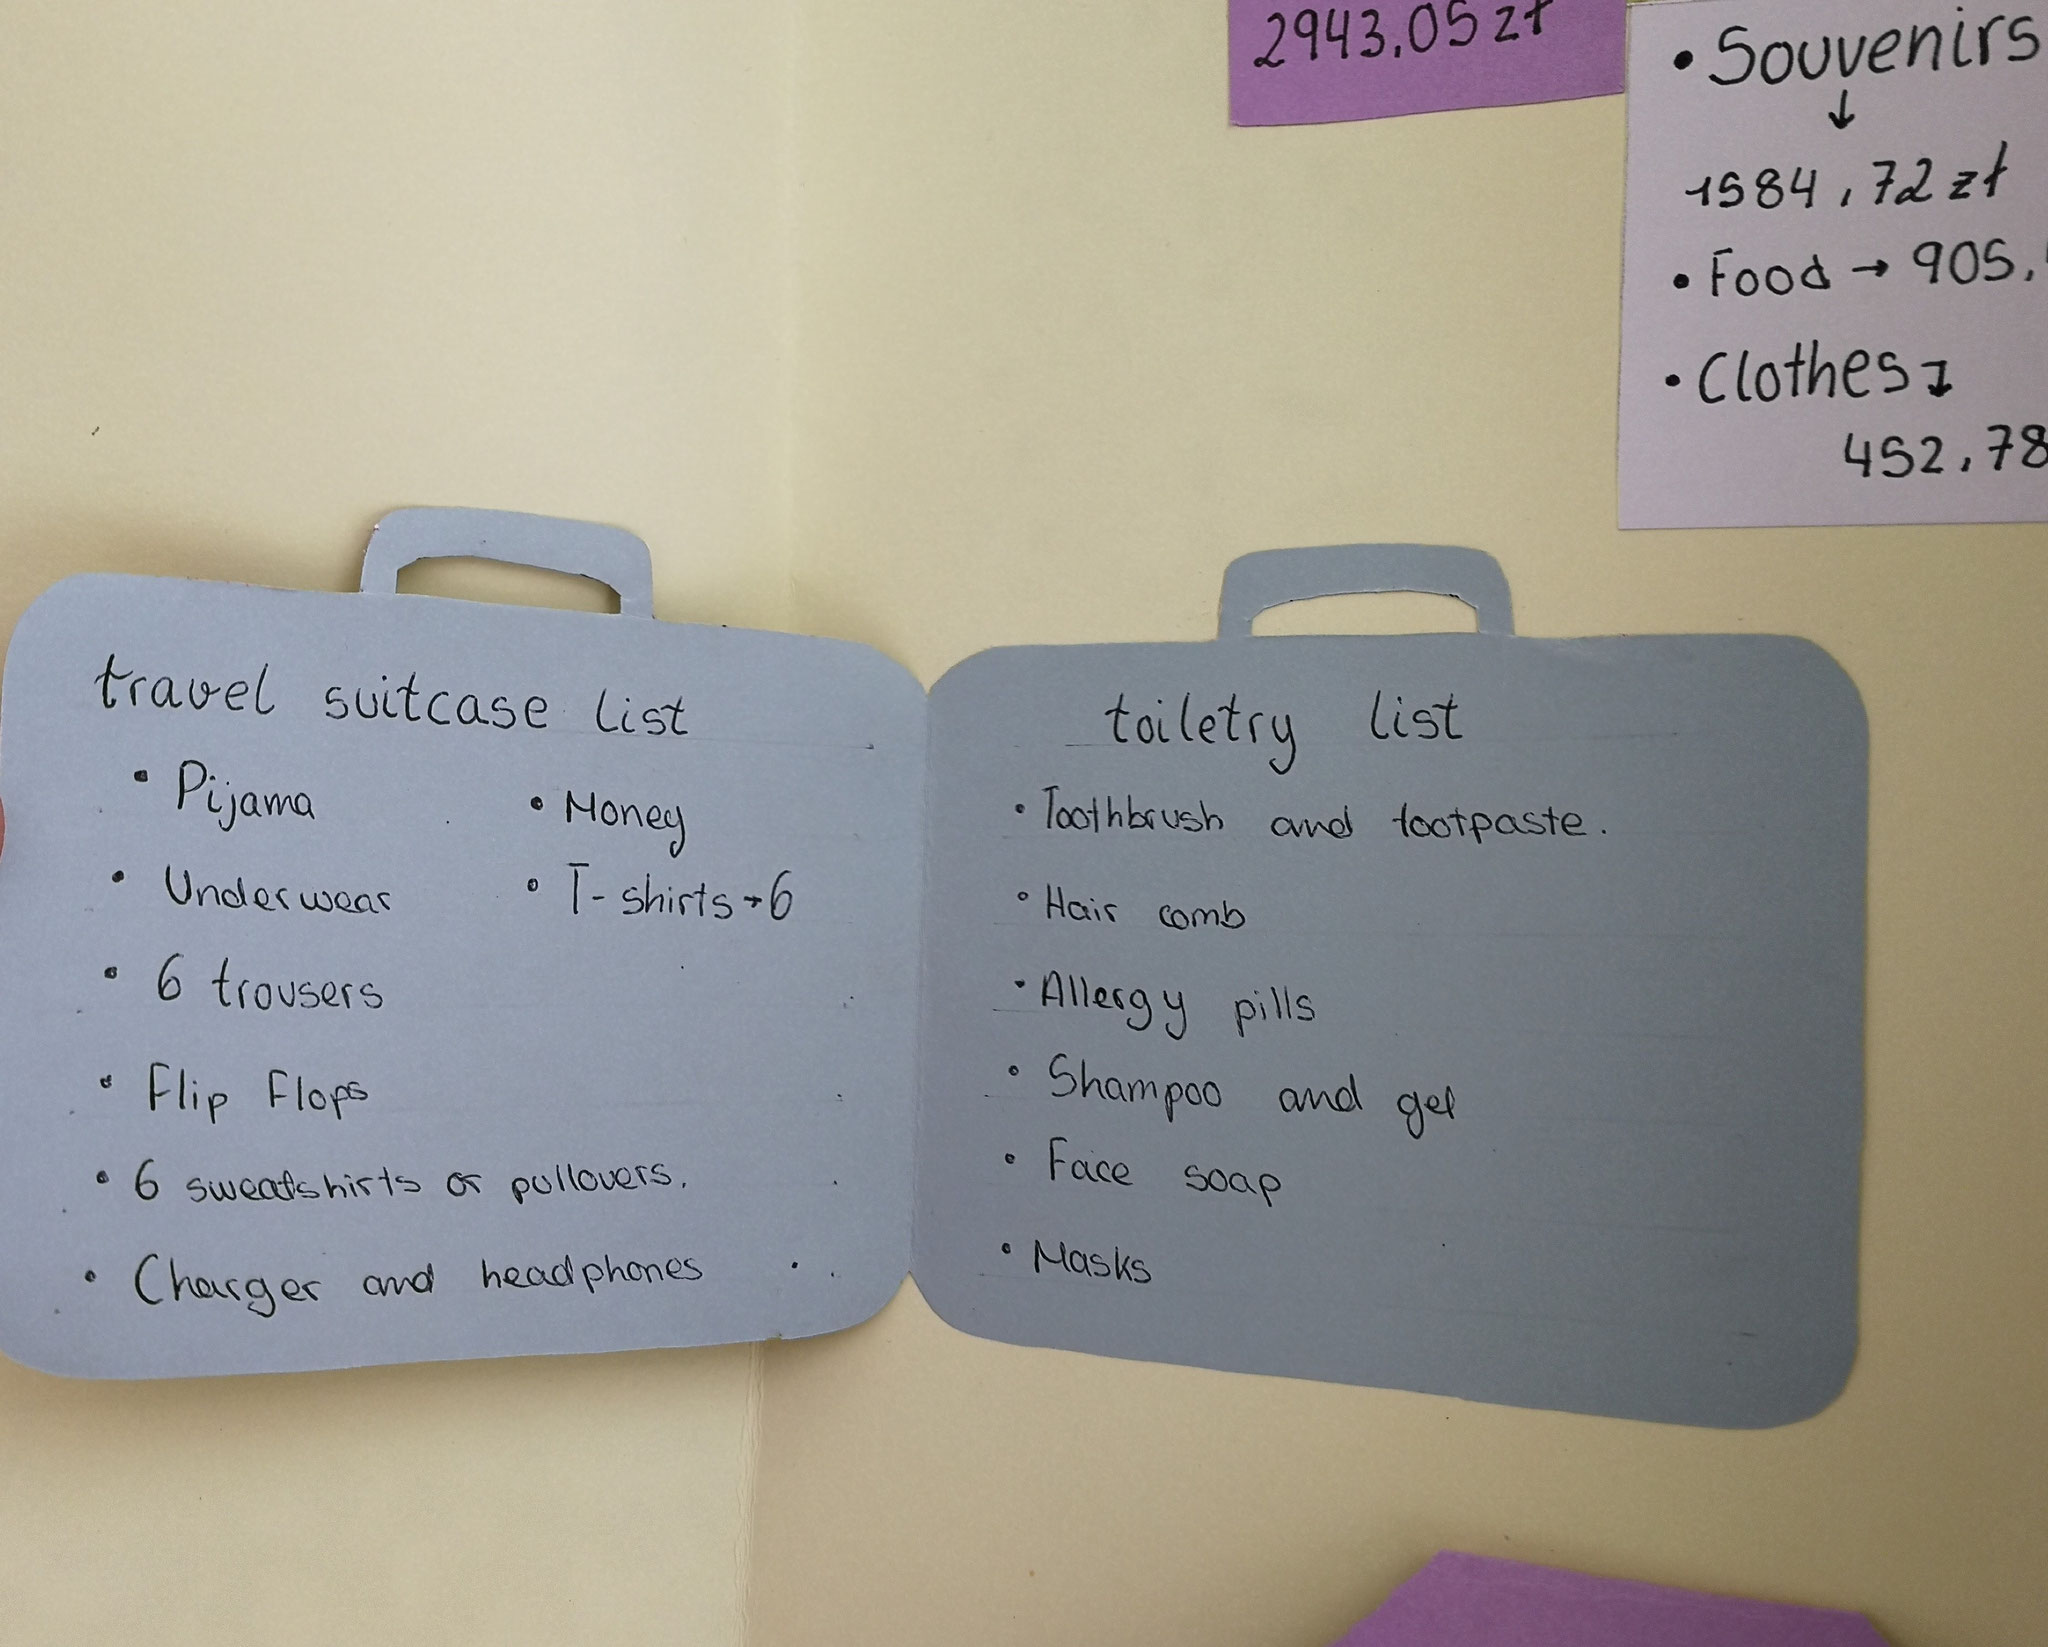 2943,05 zł
• Souvenirs
↓
1584,72 zł
• Food → 905,
• Clothes ↴
452,78
travel suitcase list
• Pijama
• Underwear
• 6 trousers
• Flip Flops
• 6 sweatshirts or pullovers.
• Charger and headphones
• Money
• T-shirts → 6
toiletry list
• Toothbrush and tootpaste.
• Hair comb
• Allergy pills
• Shampoo and gel
• Face soap
• Masks